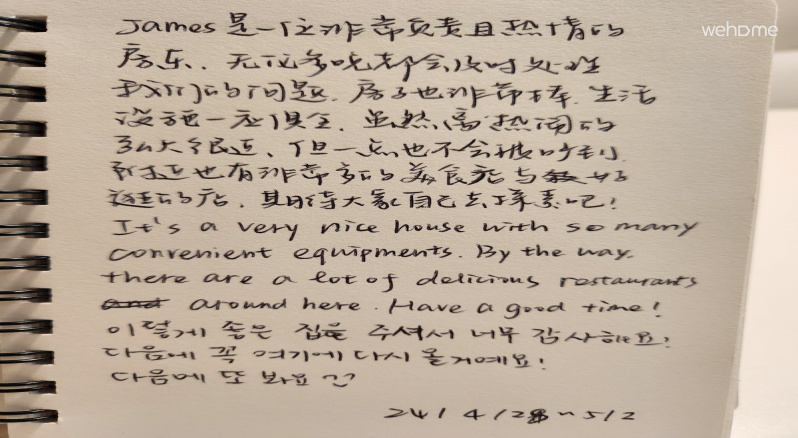 wehome
James是一位非常负责且热情的
房东、无论多晚都会及时处理
我们的问题. 房子也非常棒. 生活
设施一应俱全. 虽然离热闹的
弘大很近、但一点也不会被吵到.
附近也有非常多的美食店与好
逛的店. 期待大家自己去探索吧!
It's a very nice house with so many
convenient equipments. By the way.
there are a lot of delicious restaurants
around here. Have a good time!
이렇게 좋은 집을 주셔서 너무 감사해요!
다음에 꼭 여기에 다시 올거예요!
다음에 또 봐요
24/4/28~5/2